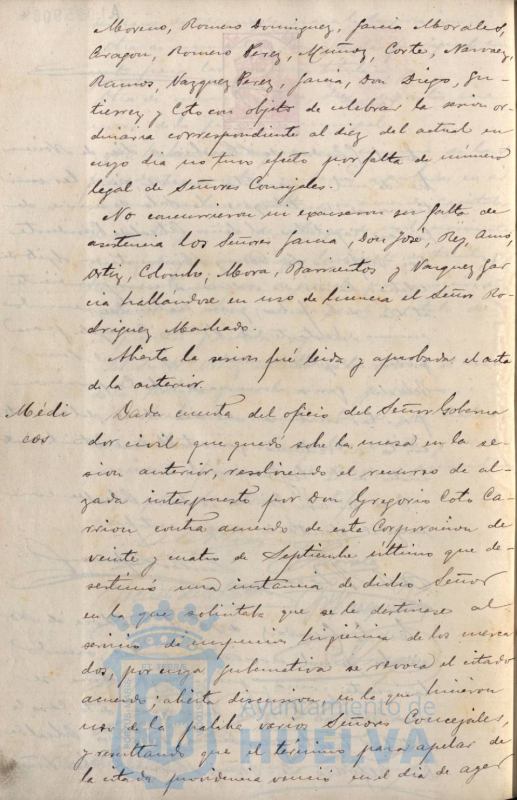 Moreno, Romero Dominguez, Garcia Morales,
Aragon, Romero Perez, Muñoz, Corte, Narvaez,
Ramos, Vazquez Perez, Garcia, Don Diego, Gu-
tierrez y Coto con objeto de celebrar la sesion or-
dinaria correspondiente al diez del actual en
cuyo dia no tuvo efecto por falta de número
legal de Señores Concejales.
No concurrieron ni excusaron su falta de
asistencia los Señores Garcia, Don José, Rey,
Ortiz, Colombo, Mora, Barrientos y Vazquez Gar
cia hallándose en uso de licencia el Señor Ro-
driguez Machado.
Abierta la sesion fué leida y aprobada el acta
de la anterior.
Médi
cos
Dada cuenta del oficio del Señor Goberna
dor civil que quedó sobe la mesa en la se-
sion anterior, resolviendo el recurso de al-
zada interpuesto por Don Gregorio Coto Ca-
rrion contra acuerdo de esta Corporacion de
veinte y cuatro de Septiembre último que de-
sestimó una instancia de dicho Señor
en la que solicitaba que se le destinase al
servicio de inspeccion higiénica de los merca
dos, por cuya gubernativa se revoca el citado
acuerdo; abierta discusion en la que hicieron
uso de la palabra varios Señores Concejales,
y resultando que el término para apelar de
la citada providencia vencio en el dia de ayer
Ayuntamiento de
HUELVA